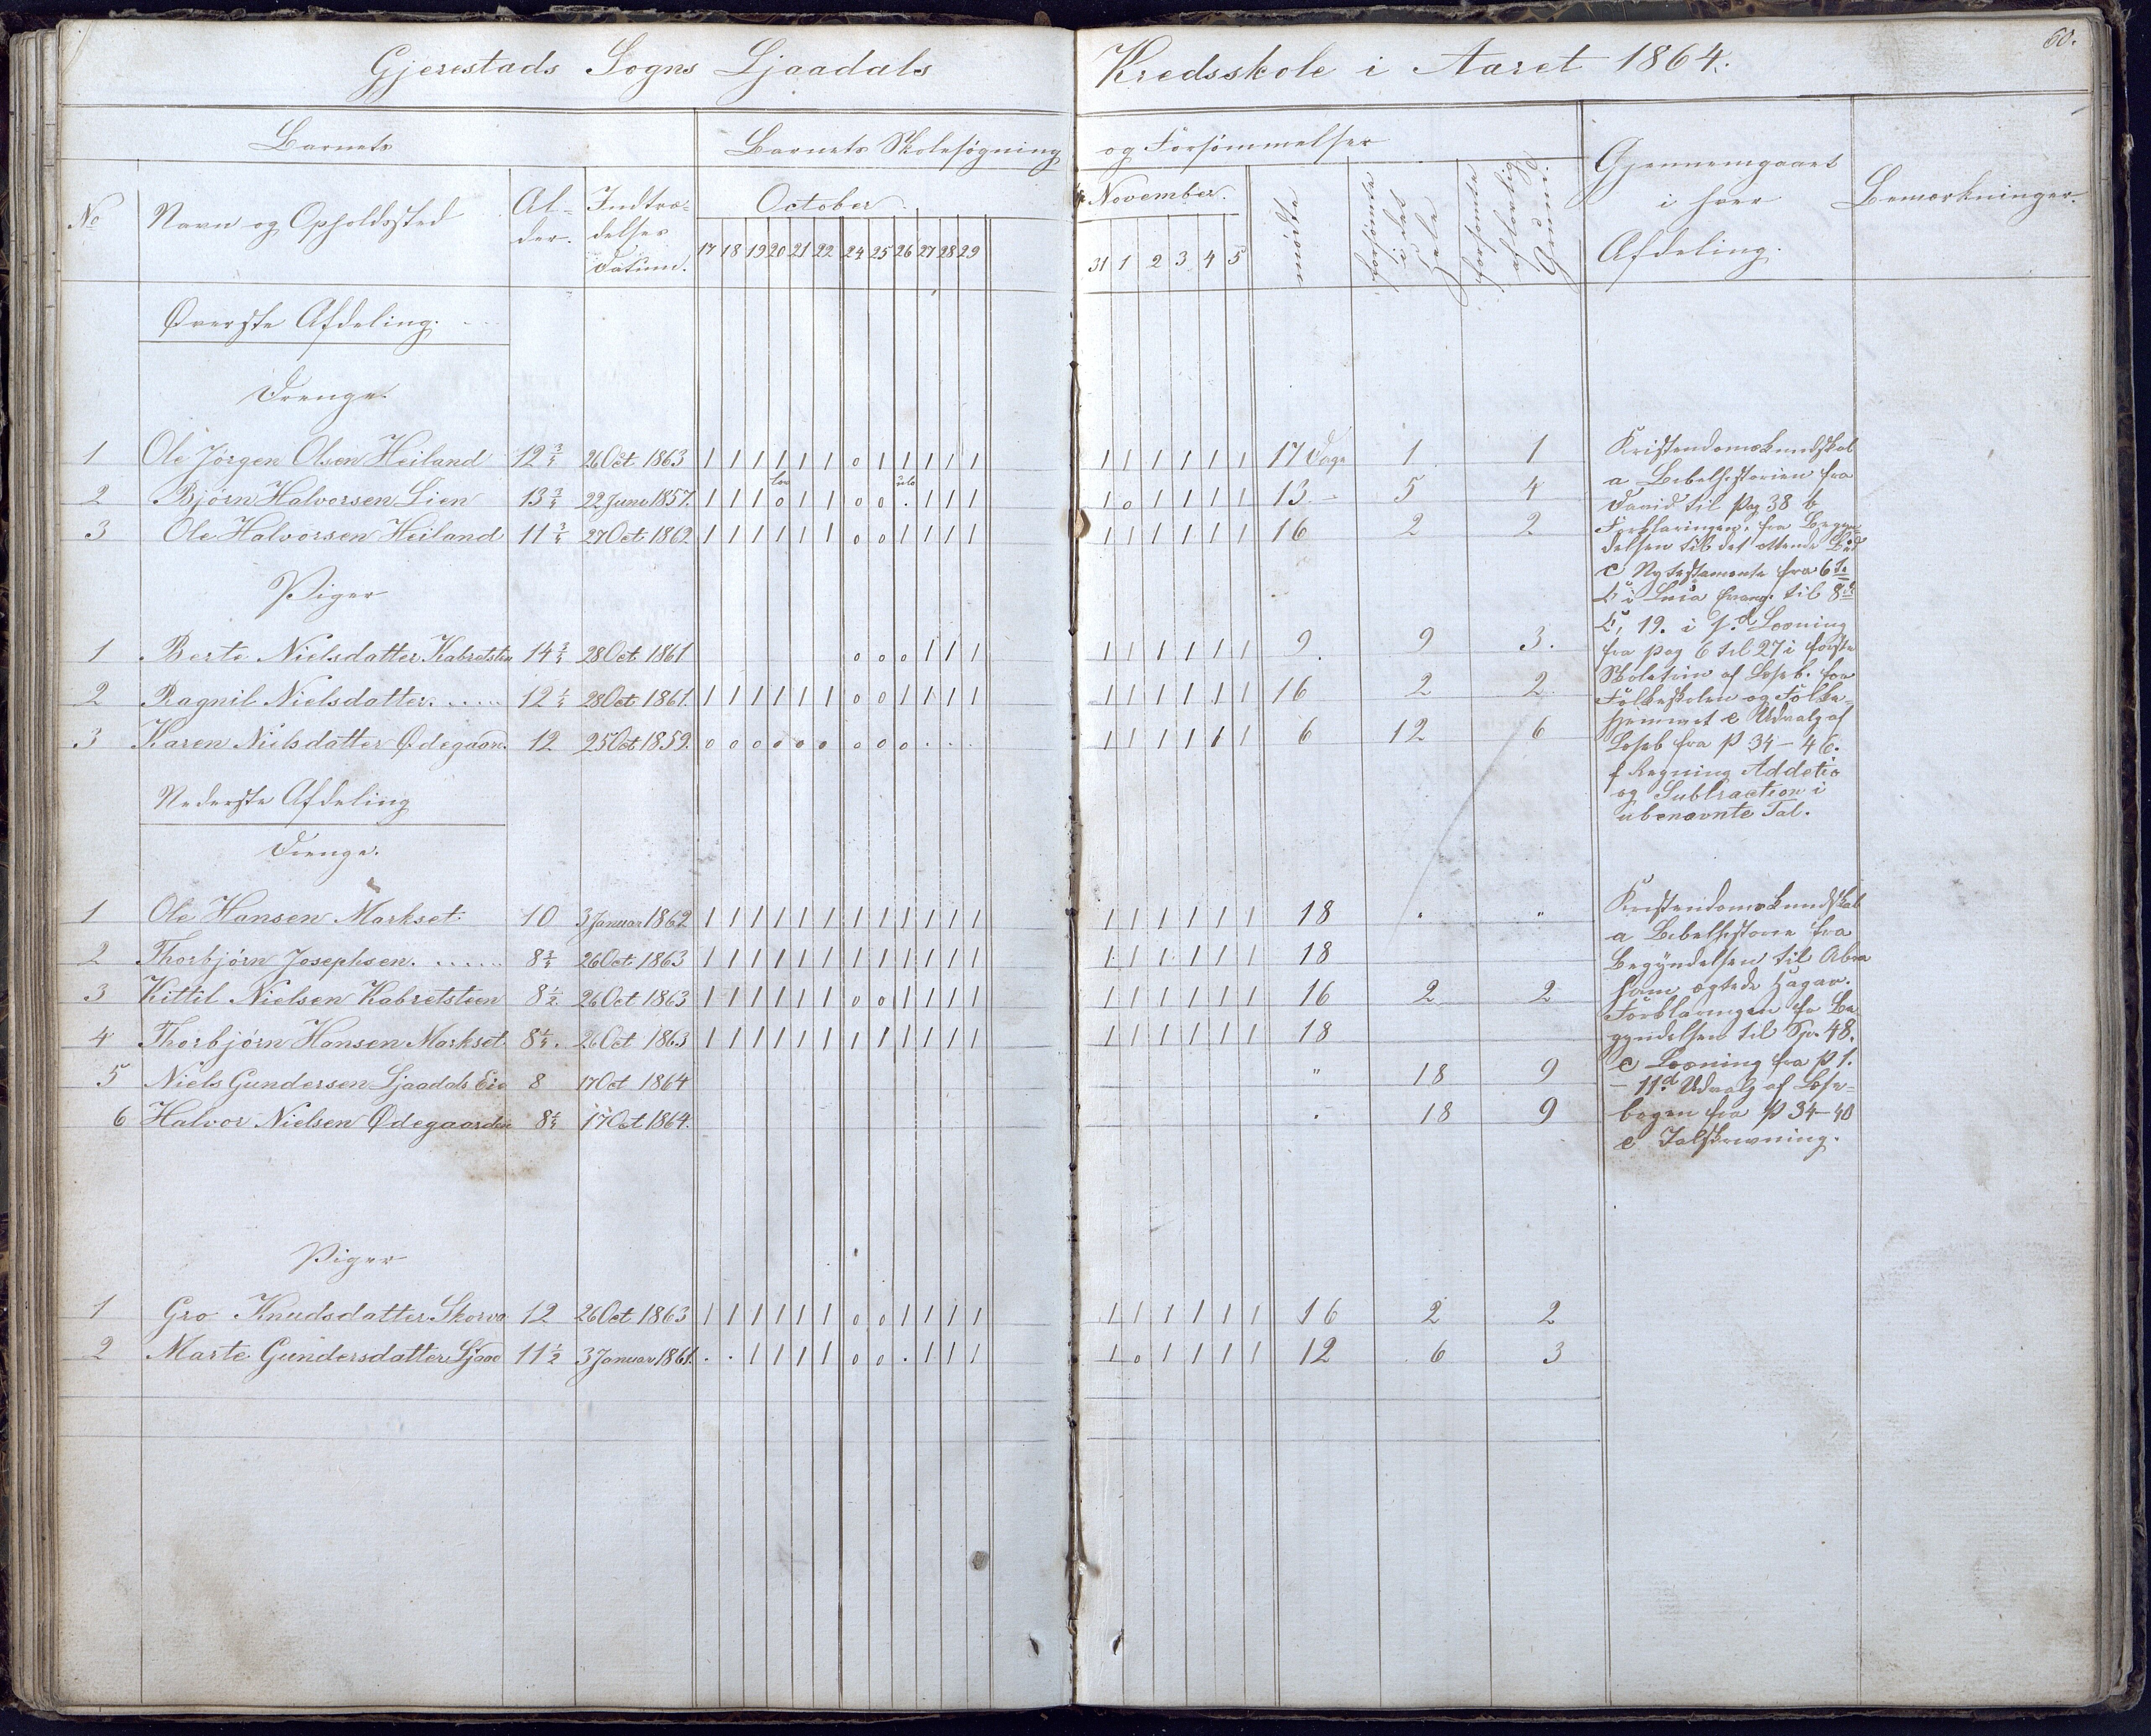 60.
Gjerestads Sogns Ljaadals Kredsskole i Aaret 1864.
Barnets Barnets Skolesøgning og Forsømmelser Gjennemgaaet i hver Afdeling. Bemærkninger.
No Navn og Opholdssted Alder. Indtrædelses Datum. October. November. mødte forsømte i det Hele forsømte af lovlig Grund.
17 18 19 20 21 22 24 25 26 27 28 29 31 1 2 3 4 5
Øverste Afdeling.
Drenge.
1 Ole Jørgen Olsen Heiland 12 3/4 26 Oct 1863 1 1 1 1 1 1 0 1 1 1 1 1 1 1 1 1 1 1 17 Dage 1 1
2 Bjørn Halvorsen Lien 13 3/4 22 Juni 1857. 1 1 1 0 1 1 0 0 . 1 1 1 1 0 1 1 1 1 13 - 5 4
3 Ole Halvorsen Heiland 11 3/4 27 Oct. 1862 1 1 1 1 1 1 0 0 1 1 1 1 1 1 1 1 1 1 16 2 2
Piger
1 Berte Nielsdatter Kabretsten 14 3/4 28 Oct. 1861 0 0 0 1 1 1 1 1 1 1 1 1 9 9 3.
2 Ragnil Nielsdatter ..... 12 1/4 28 Oct 1861. 1 1 1 1 1 1 0 0 1 1 1 1 1 1 1 1 1 1 16 2 2
3 Karen Nielsdatter Ødegaarn. 12 25 Oct 1859. 0 0 0 0 0 0 0 0 0 . . . 1 1 1 1 1 1 6 12 6
Kristendomskundskab
a Bibelhistorien fra
David til pag 38 b
Forklaringen fra Begyndelsen til det ottende Bud
c Ny testamente fra 6te
C i Luca Evang. til 8de
C, 19. i 1. d Læsning
fra pag 6 til 27 i første
Skoletrin af Læseb. for
Folkeskolen og Folkehjemmet e Udvalg af
Læseb fra p 34 - 46.
f Regning Addetio
og Subtraction i
ubenævnte Tal.
Nederste Afdeling
Drenge.
1 Ole Hansen Markset 10 3 Januar 1862 1 1 1 1 1 1 1 1 1 1 1 1 1 1 1 1 1 1 18 " "
2 Thorbjørn Josephsen. ..... 8 3/4 26 Oct. 1863 1 1 1 1 1 1 1 1 1 1 1 1 1 1 1 1 1 1 18
3 Kittil Nielsen Kabretsteen 8 1/2 26 Oct 1863 1 1 1 1 1 1 0 0 1 1 1 1 1 1 1 1 1 1 16 2 2
4 Thorbjørn Hansen Markset 8 1/4. 26 Oct 1863 1 1 1 1 1 1 1 1 1 1 1 1 1 1 1 1 1 1 18
5 Niels Gundersen Ljaadals Eie 8 17 Oct 1864 " 18 9
6 Halvor Nielsen Ødegaarden 8 1/4 17 Oct 1864. " 18 9
Kristendomskundskab
a Bibelhistorie fra
Begyndelsen til Abraham ægtede Hagar.
Forklaringen fra Begyndelsen til Sp. 48.
c Læsning fra p 1.
- 11. d Udvalg af Læsebogen fra p 34-40
e Talskrivning.
Piger
1 Gro Knudsdatter Skorve 12 26 Oct 1863 1 1 1 1 1 1 0 0 1 1 1 1 1 1 1 1 1 1 16 2 2
2 Marte Gundersdatter Ljaad 11 1/2 3 Januar 1861. . . 1 1 1 1 0 0 . 1 1 1 1 0 1 1 1 1 12 6 3